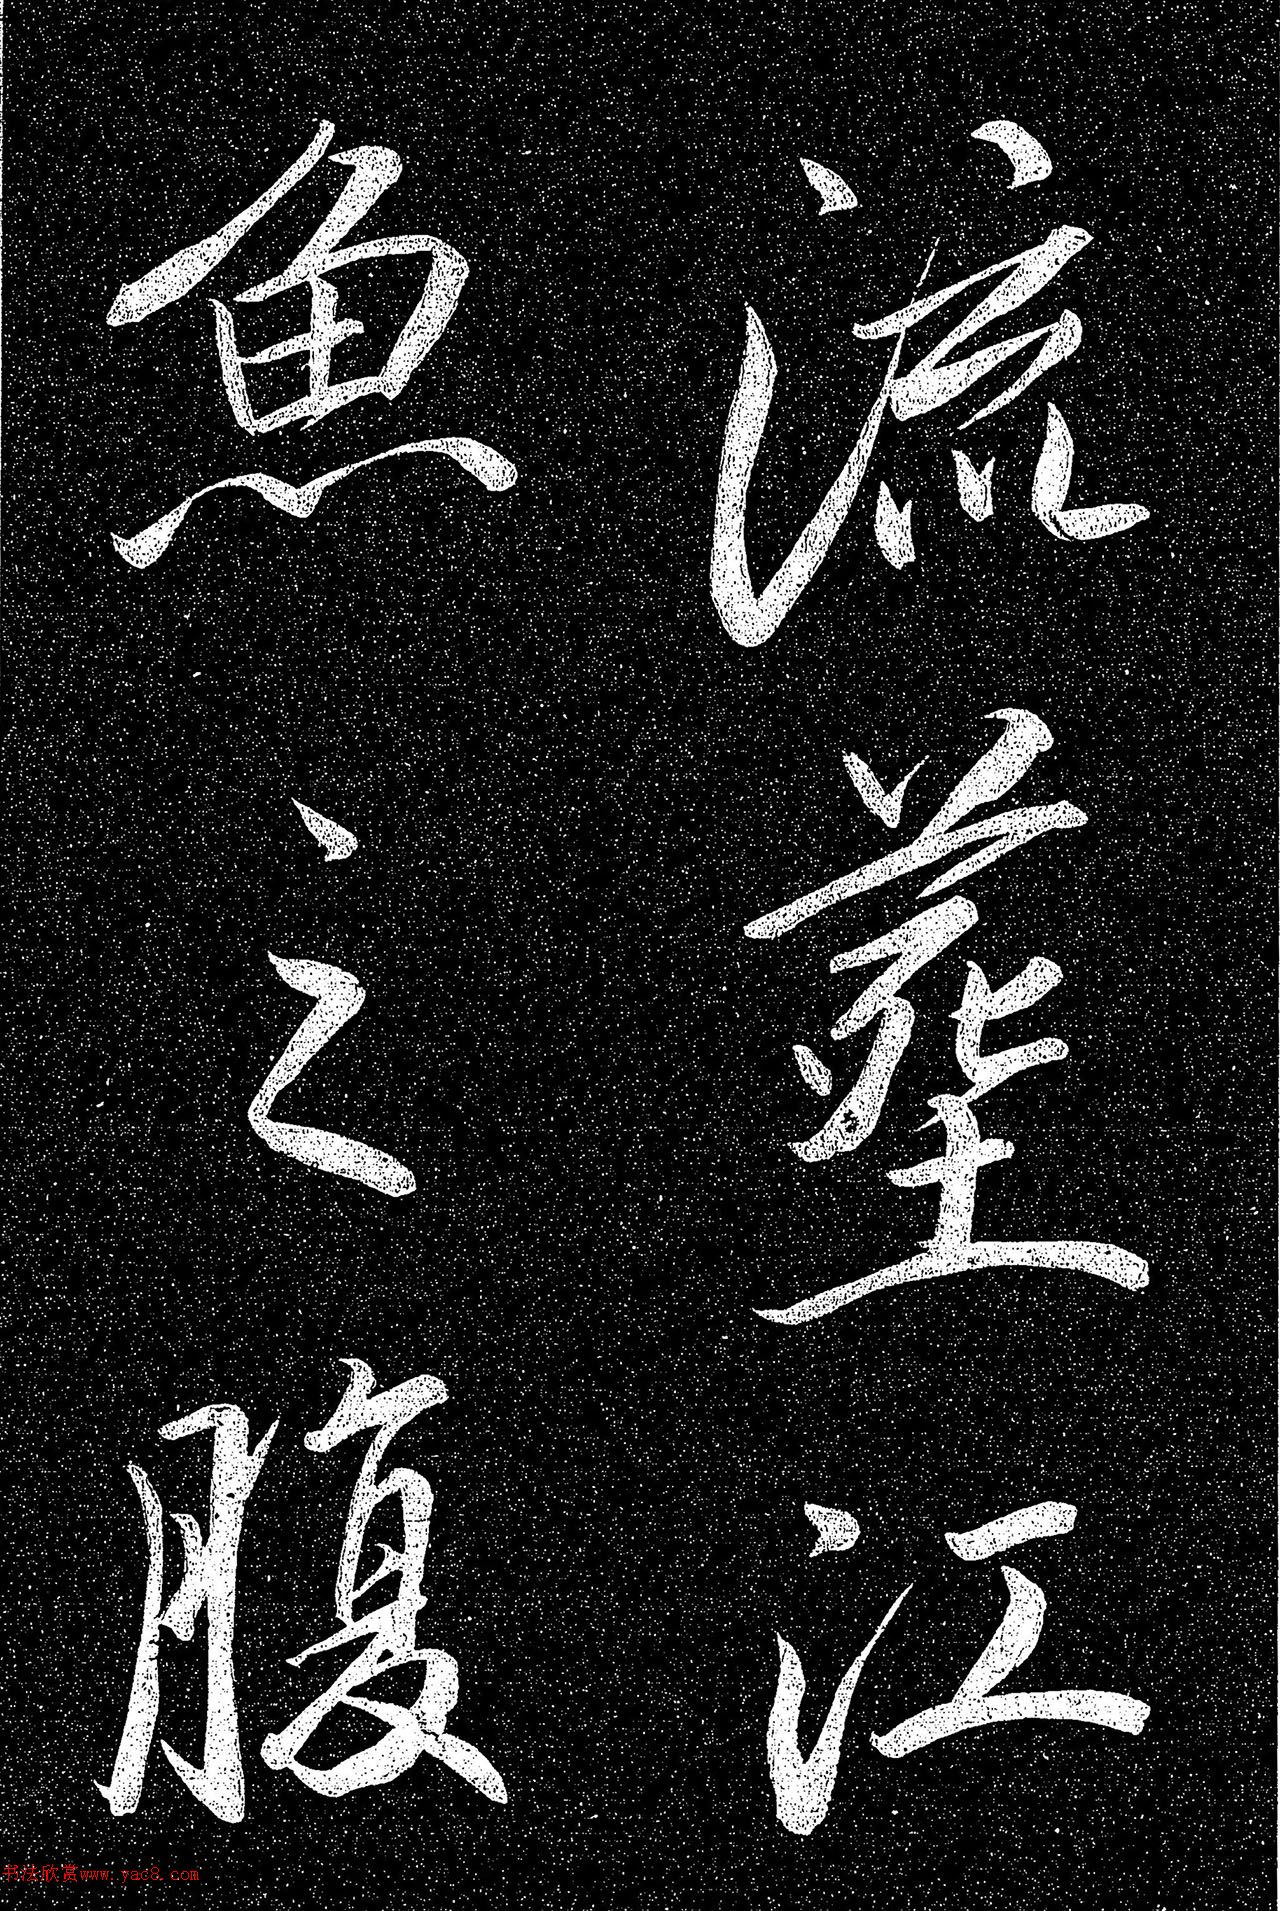 流葬江
魚之腹
书法欣赏www.yac8.com